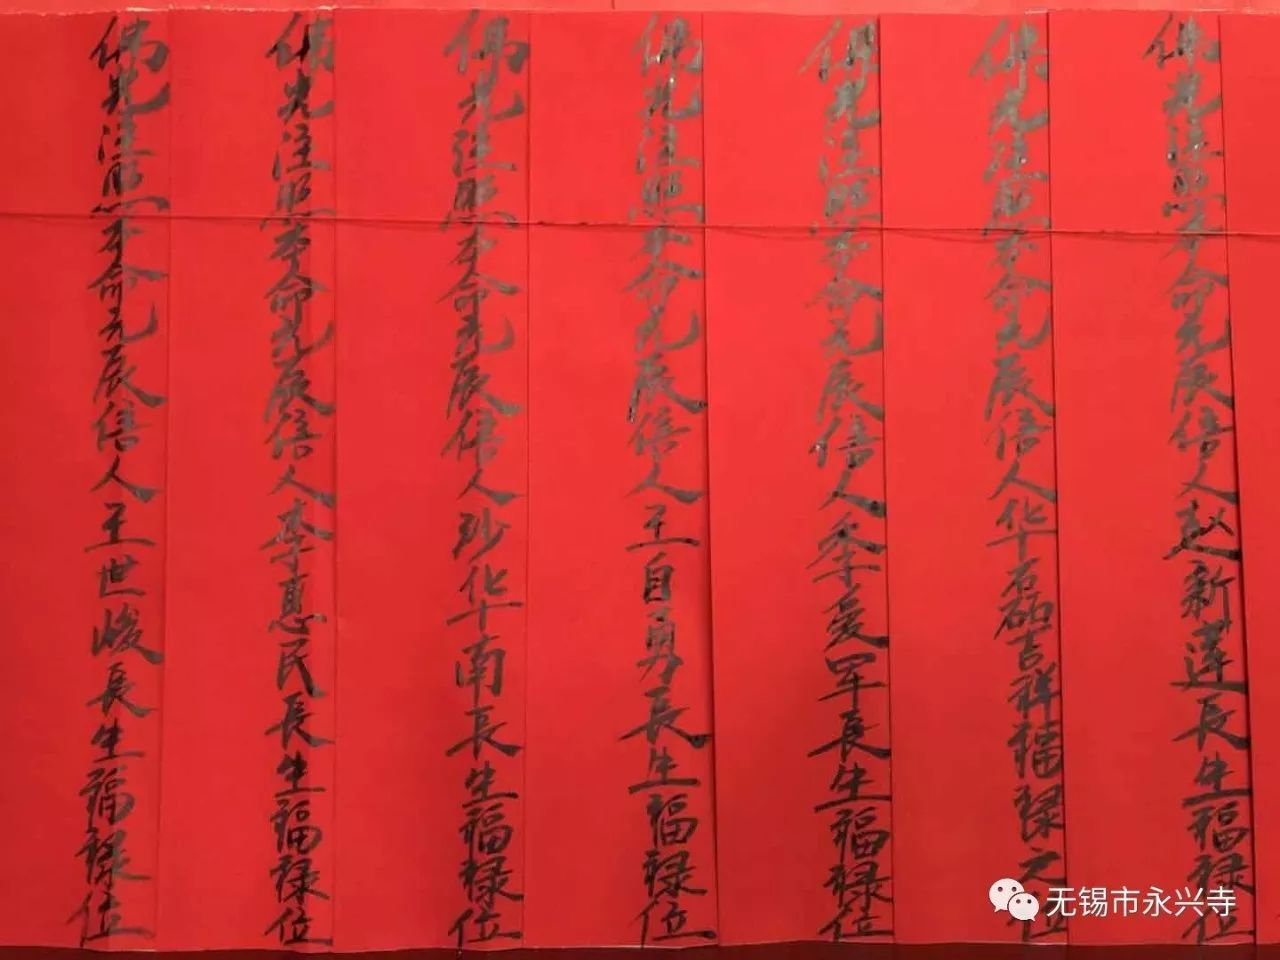 佛光注照本命元辰信人赵新莲長生福禄位
佛光注照本命元辰信人华磊吉祥福禄之位
佛光注照本命元辰信人季爱军長生福禄位
佛光注照本命元辰信人王自勇長生福禄位
佛光注照本命元辰信人沙华南長生福禄位
佛光注照本命元辰信人李惠民長生福禄位
佛光注照本命元辰信人王世峻長生福禄位
无锡市永兴寺